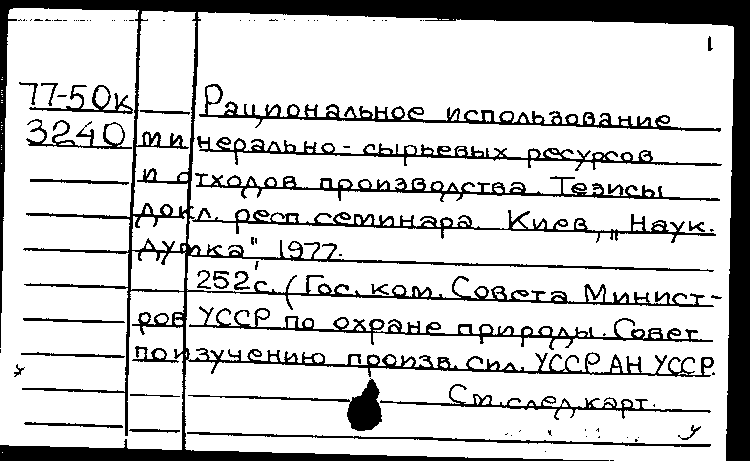 1
77-50к Рациональное использование
3240 минерально-сырьевых ресурсов
и отходов производства. Тезисы
докл. респ. семинара. Киев, „Наук.
думка" 1977.
252с. (Гос. ком. Совета Минист-
ров УССР по охране природы. Совет
по изучению произв. сил. УССР АН УССР.
См. след. карт.